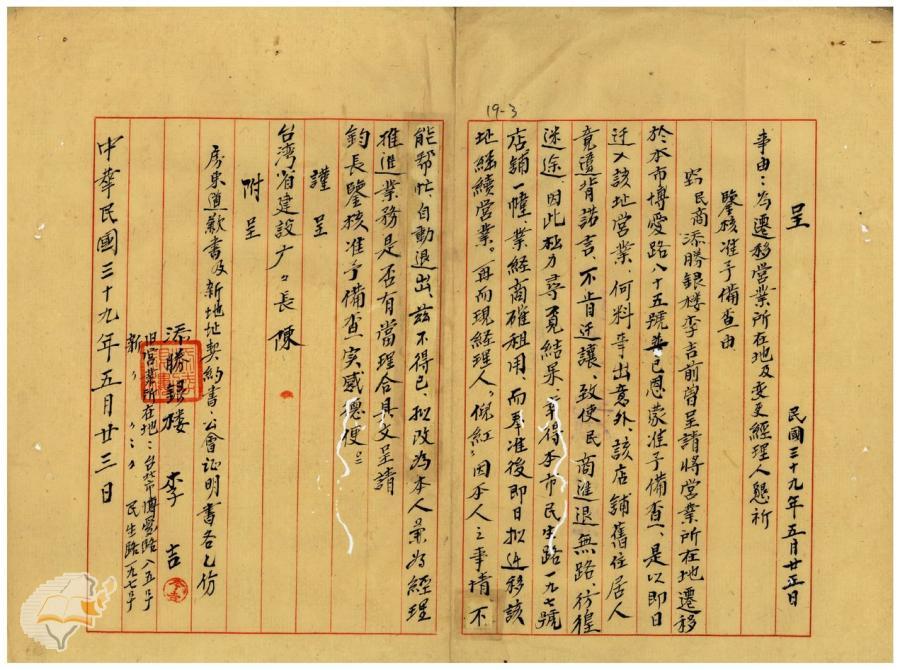 19-3
呈 民國三十九年五月廿三日
事由:為遷移營業所在地及变更經理人懇祈
鑒核准予備查由
竊民商添勝銀楼李吉前曾呈請將營業所在地遷移
於本市博愛路八十五號業已恩蒙准予備查、是以即日
迁入該址營業、何料事出意外、該店舖舊住居人
竟違背諾言、不肯迁讓、致使民商進退無路、彷徨
迷途、因此極力尋覓結果、幸得本市民生路一九七號
店舖一幢、業經商確租用、而奉准後即日拟迁移該
址継續營業。再而現経理人〝倪紅〞因本人之事情不
能幇忙自動退出、兹不得已、拟改為本人兼為經理
推進業務是否有當理合具文呈請
鈞長鑒核准予備查实感德便
謹呈
台湾省建設廳〻長陳
附呈
房東道歉書及新地址契約書、公會证明書各乙份
添勝銀楼 李吉
旧營業所在地:台北市博愛路八五号
新〃〃〃:〃民生路一九七号
中華民國三十九年五月廿三日